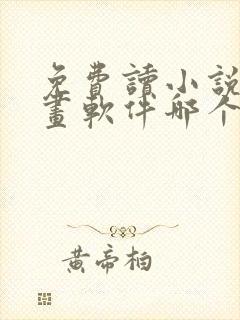 免費讀小說
畫軟件哪个
黃帝柏